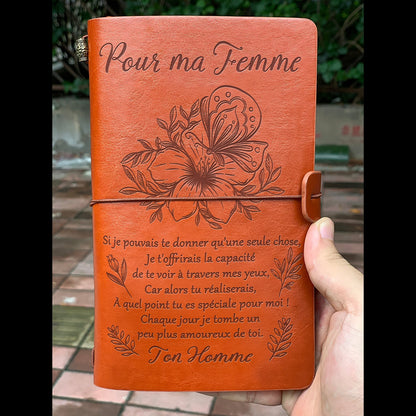 Pour ma Femme
Si je pouvais te donner qu'une seule chose,
Je t'offrirais la capacité
de te voir à travers mes yeux,
Car alors tu réaliserais,
A quel point tu es spéciale pour moi !
Chaque jour je tombe un
peu plus amoureux de toi.
Ton Homme